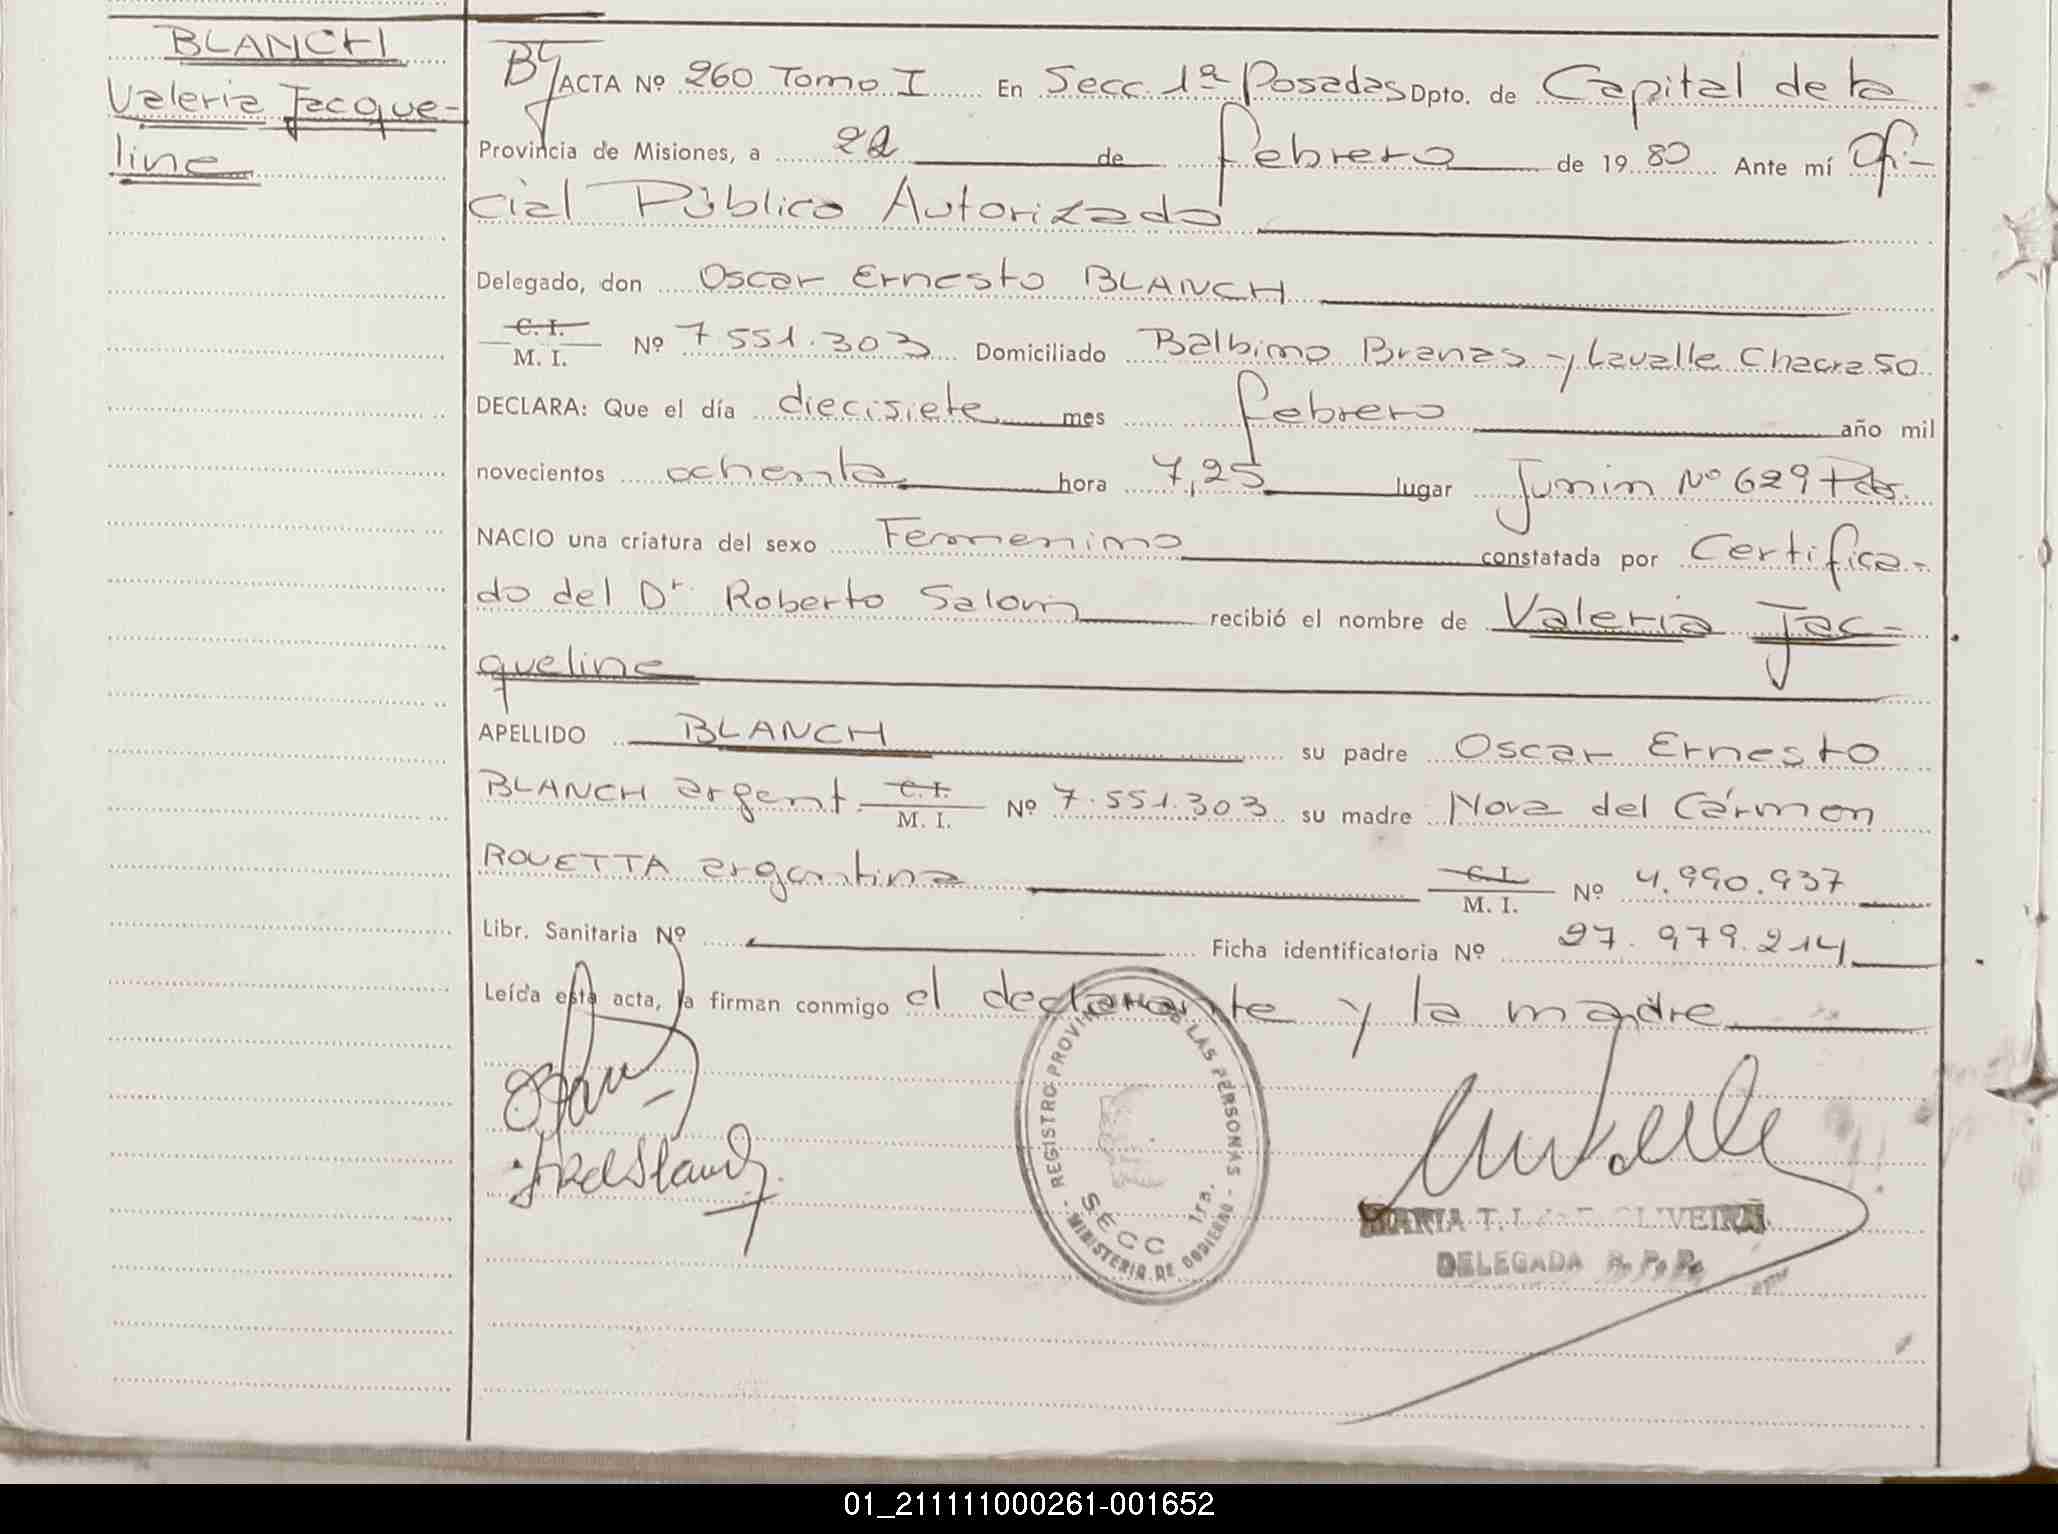 BLANCH
Valeria Jacque-
line
ACTA Nº 260 Tomo I En Secc. 1ª Posadas Dpto. de Capital de la
Provincia de Misiones, a 22 de febrero de 1980 Ante mí Ofi-
cial Público Autorizado
Delegado, don Oscar Ernesto BLANCH
C. I.
M. I. Nº 7.551.303 Domiciliado Balbino Branas y Lavalle Chacra 50
DECLARA: Que el día diecisiete mes febrero año mil
novecientos ochenta hora 7,25 lugar Junin Nº 629 Pdas.
NACIO una criatura del sexo Femenino constatada por Certifica-
do del Dr. Roberto Salom recibió el nombre de Valeria Jac-
queline
APELLIDO BLANCH su padre Oscar Ernesto
BLANCH argent. C. I. M. I. Nº 7.551.303 su madre Nora del Cármen
ROVETTA argentina C. I. M. I. Nº 4.990.937
Libr. Sanitaria Nº Ficha identificatoria Nº 27.979.214
Leída esta acta, la firman conmigo el declarante y la madre
REGISTRO PROVINCIAL DE LAS PERSONAS
SECC 1ra.
MINISTERIO DE GOBIERNO
MARIA T. OLIVEIRA
DELEGADA R. P. P.
01_211111000261-001652